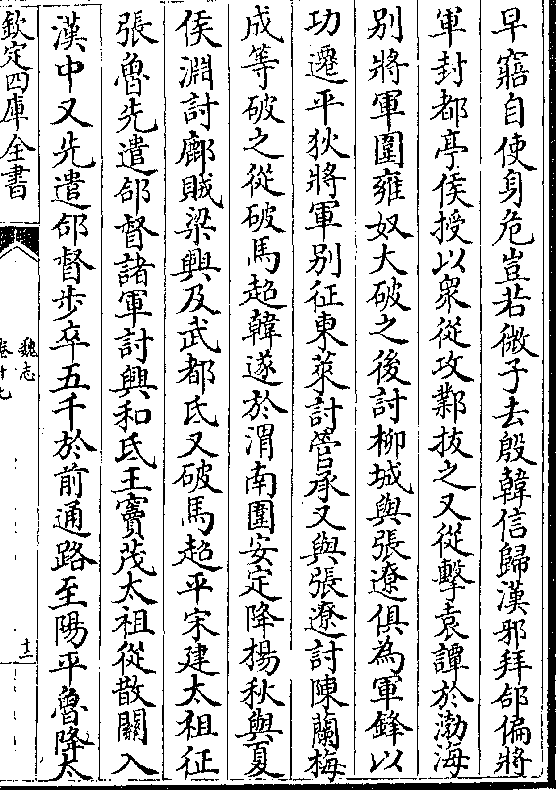 早寤自使身危豈若微子去殷韓信歸漢邪拜郃偏將
軍封都亭侯授以衆從攻鄴拔之又從擊袁譚於渤海
别將軍圍雍奴大破之後討柳城與張遼俱為軍鋒以
功遷平狄將軍别征東萊討管承又與張遼討陳蘭梅
成等破之從破馬超韓遂於渭南圍安定降楊秋與夏
侯淵討鄜賊梁興及武都氐又破馬超平宋建太祖征
張魯先遣郃督諸軍討興和氐王竇茂太祖從散關入
漢中又先遣郃督步卒五千於前通路至陽平魯降太
欽定四庫全書
魏志
卷十七
十二